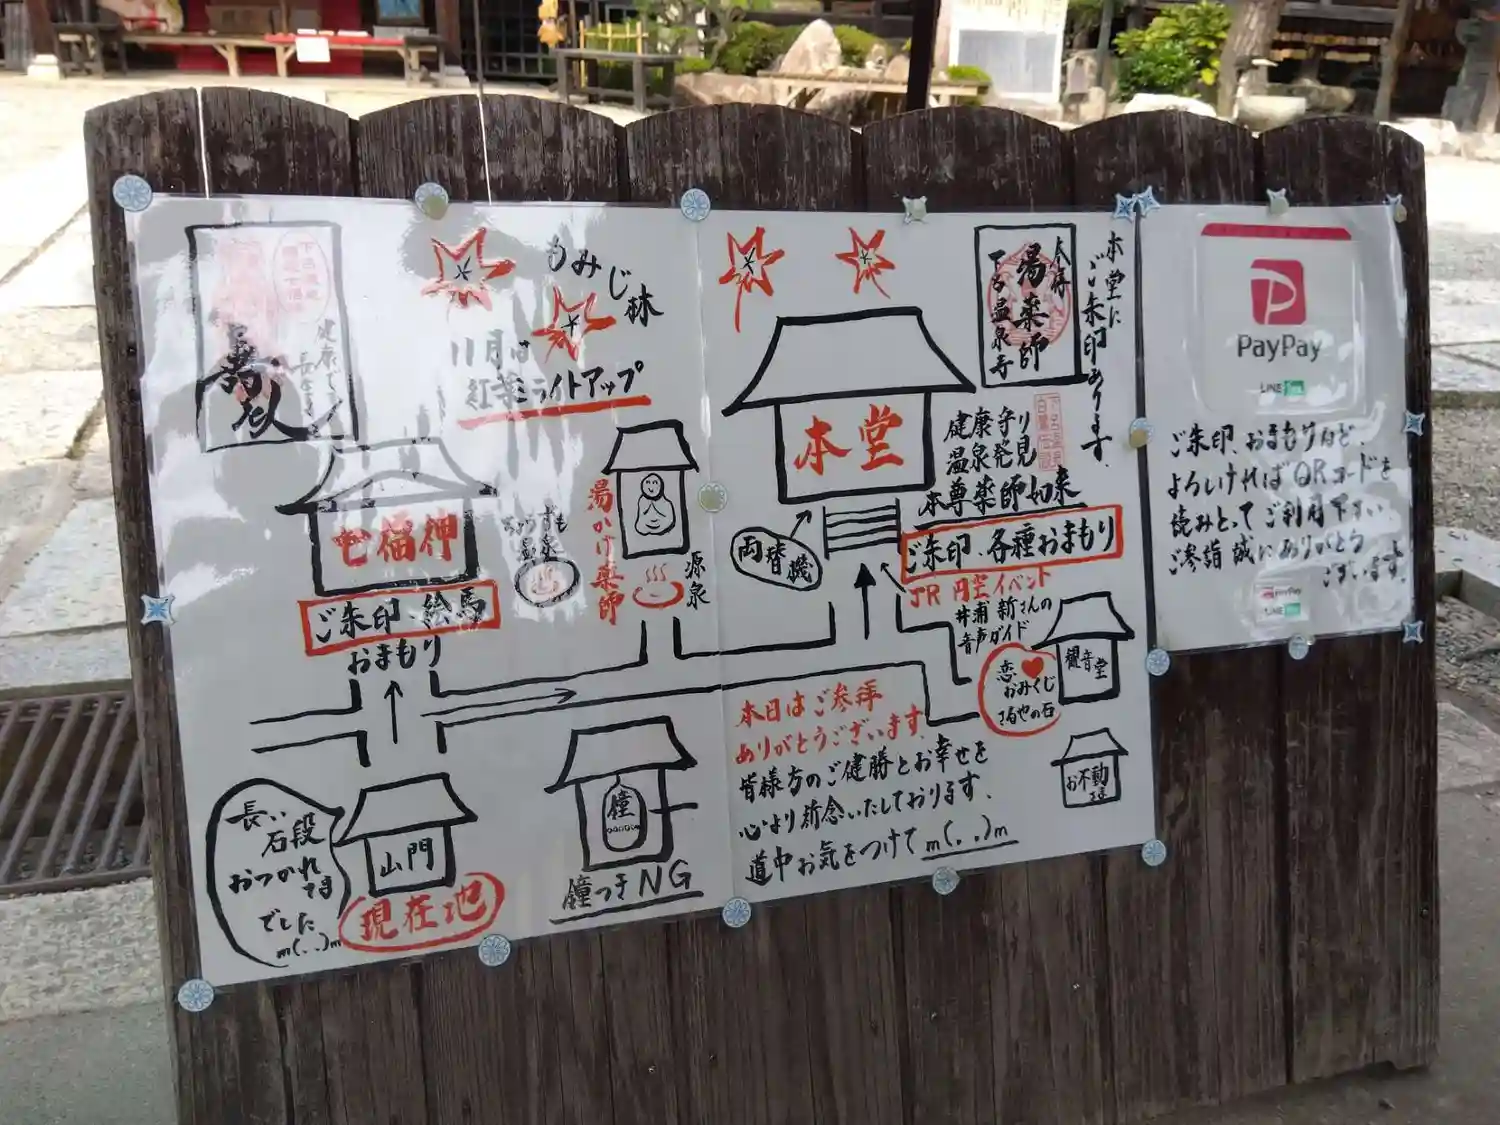 もみじ林
11月は
紅葉ライトアップ
七福神
ご朱印・絵馬
おまもり
ちょうずも
温泉
湯かけ薬師
源泉
長い
石段
おつかれ
さま
でした
m(..)m
山門
現在地
鐘
鐘つきNG
本堂
両替機
本尊
湯薬師
下呂温泉寺
本堂に
ご朱印あります。
健康守り
温泉発見
本尊薬師如来
ご朱印、各種おまもり
JR 円空イベント
井浦 新さんの
音声ガイド
恋
おみくじ
さるやの石
観音堂
お不動
さま
本日はご参拝
ありがとうございます。
皆様方のご健勝とお幸せを
心より祈念いたしております。
道中お気をつけて m(..)m
PayPay
LINE Pay
ご朱印、おまもりなど、
よろしければQRコードを
読みとってご利用下さい
ご参詣 誠にありがとう
ございます。
PayPay
LINE